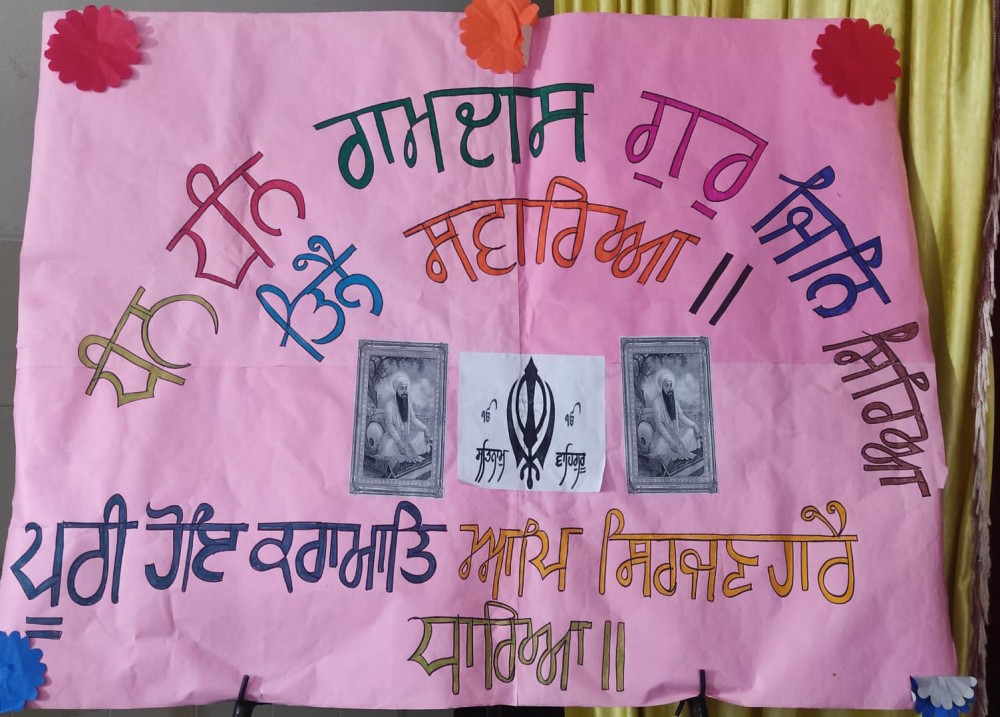 ਧੰਨ ਧੰਨ ਰਾਮਦਾਸ ਗੁਰੁ ਜਿਨਿ ਸਿਰਿਆ
ਤਿਨੈ ਸਵਾਰਿਆ ॥
ੴ ੴ
ਸਤਿਨਾਮੁ ਵਾਹਿਗੁਰੂ
ਪੂਰੀ ਹੋਇ ਕਰਾਮਾਤਿ ਆਪਿ ਸਿਰਜਣਹਾਰੈ
ਧਾਰਿਆ ॥